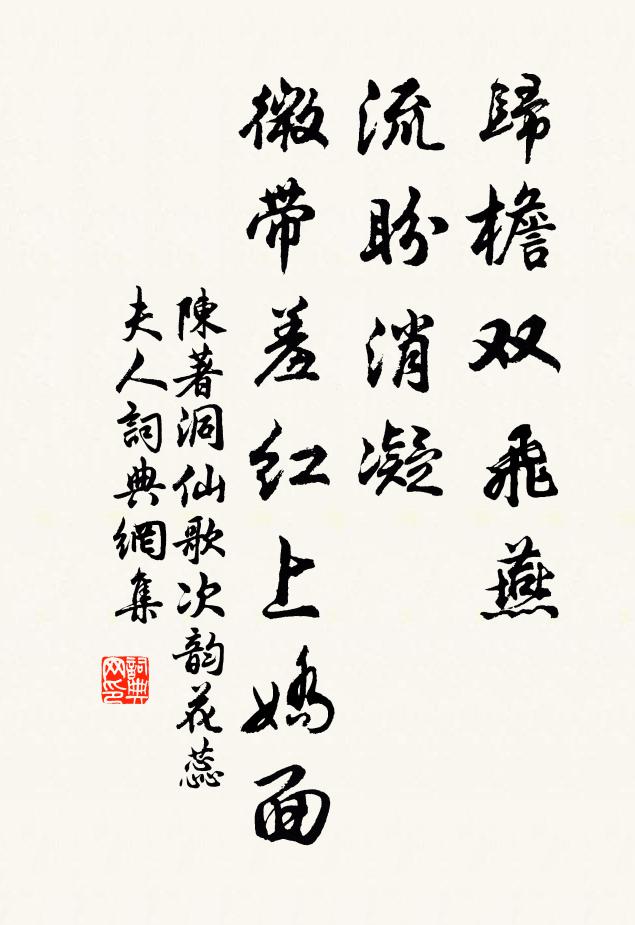 歸檐双飛燕
流盼消凝
微帶羞红上嬌面
陳著洞仙歌次韵花蕊
夫人詞典網集
詞典网印